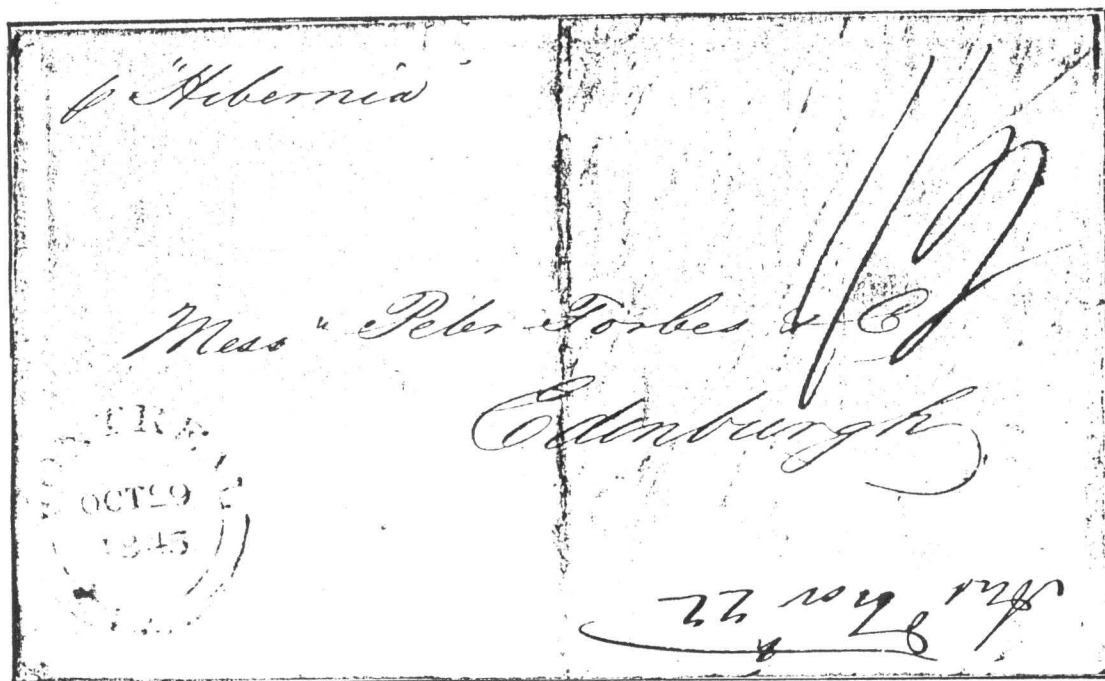 p "Hibernia"
1/2
Mess" Peter Forbes & C
Edinburgh
OCT 29
1845
Nov 22